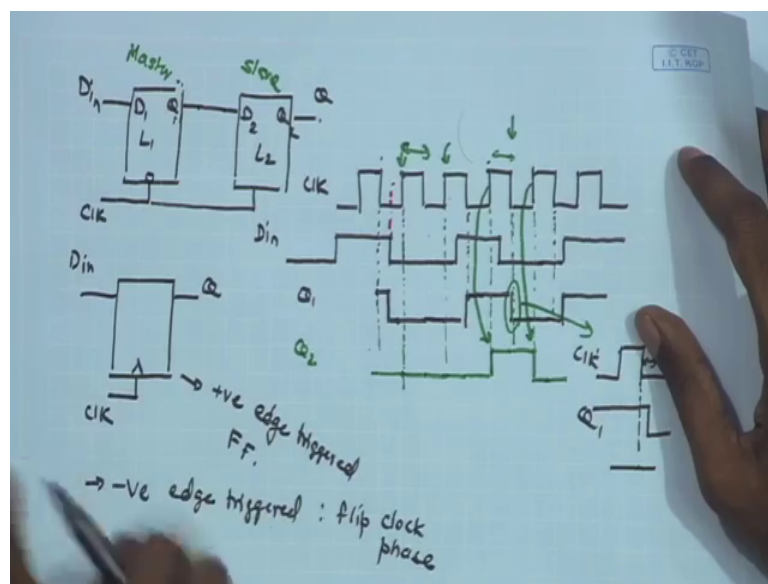 Master
Slave
Din
D1 Q1
L1
D2 Q2
L2
Q
CLK
CLK
Din
Q1
Q2
Din
Q
CLK
→ +ve edge triggered
FF.
→ -ve edge triggered : flip clock
phase
CLK
Q1
© CET
I.I.T. KGP